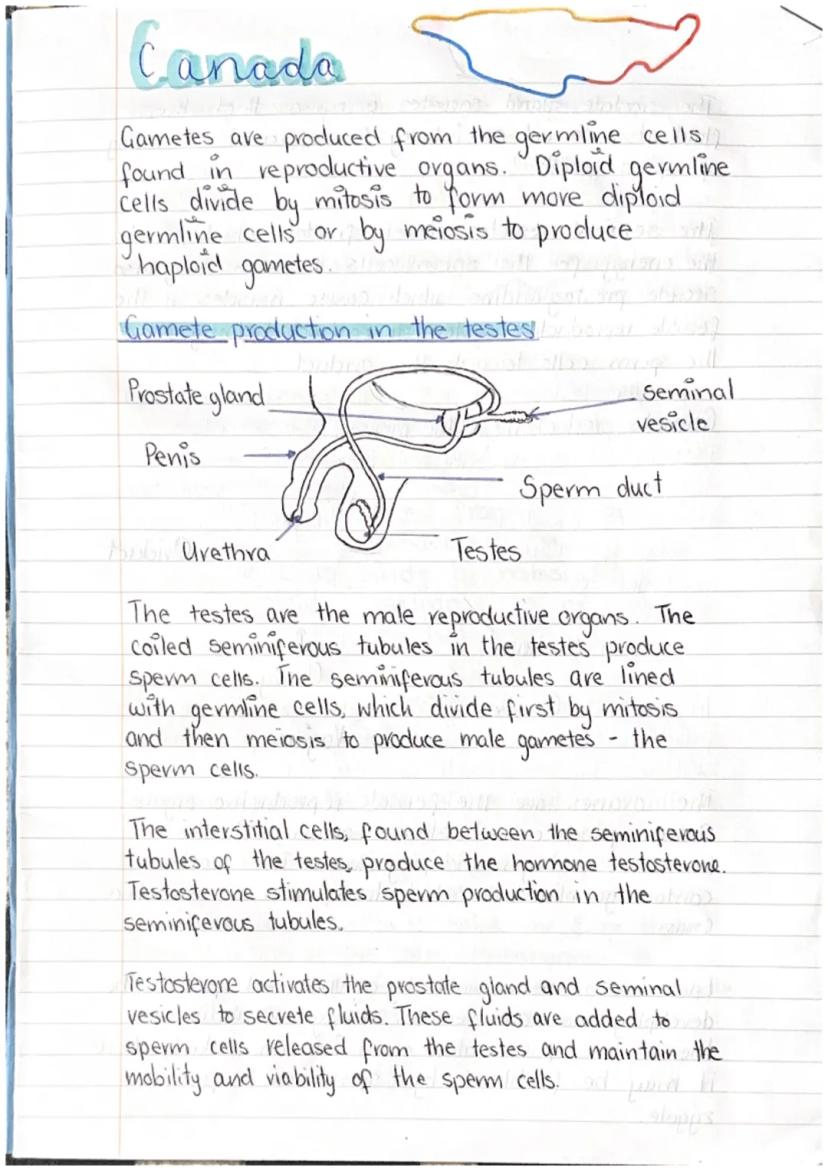 Canada
Gametes are produced from the germline cells
found in reproductive organs. Diploid germline
cells divide by mitosis to form more diploid
germline cells or by meiosis to produce
haploid gametes.
Gamete production in the testes
Prostate gland
seminal
vesicle
Penis
Sperm duct
Urethra
Testes
The testes are the male reproductive organs. The
coiled seminiferous tubules in the testes produce
sperm cells. The seminiferous tubules are lined
with germline cells, which divide first by mitosis
and then meiosis to produce male gametes - the
sperm cells.
The interstitial cells, found between the seminiferous
tubules of the testes, produce the hormone testosterone.
Testosterone stimulates sperm production in the
seminiferous tubules.
Testosterone activates the prostate gland and seminal
vesicles to secrete fluids. These fluids are added to
sperm cells released from the testes and maintain the
mobility and viability of the sperm cells.